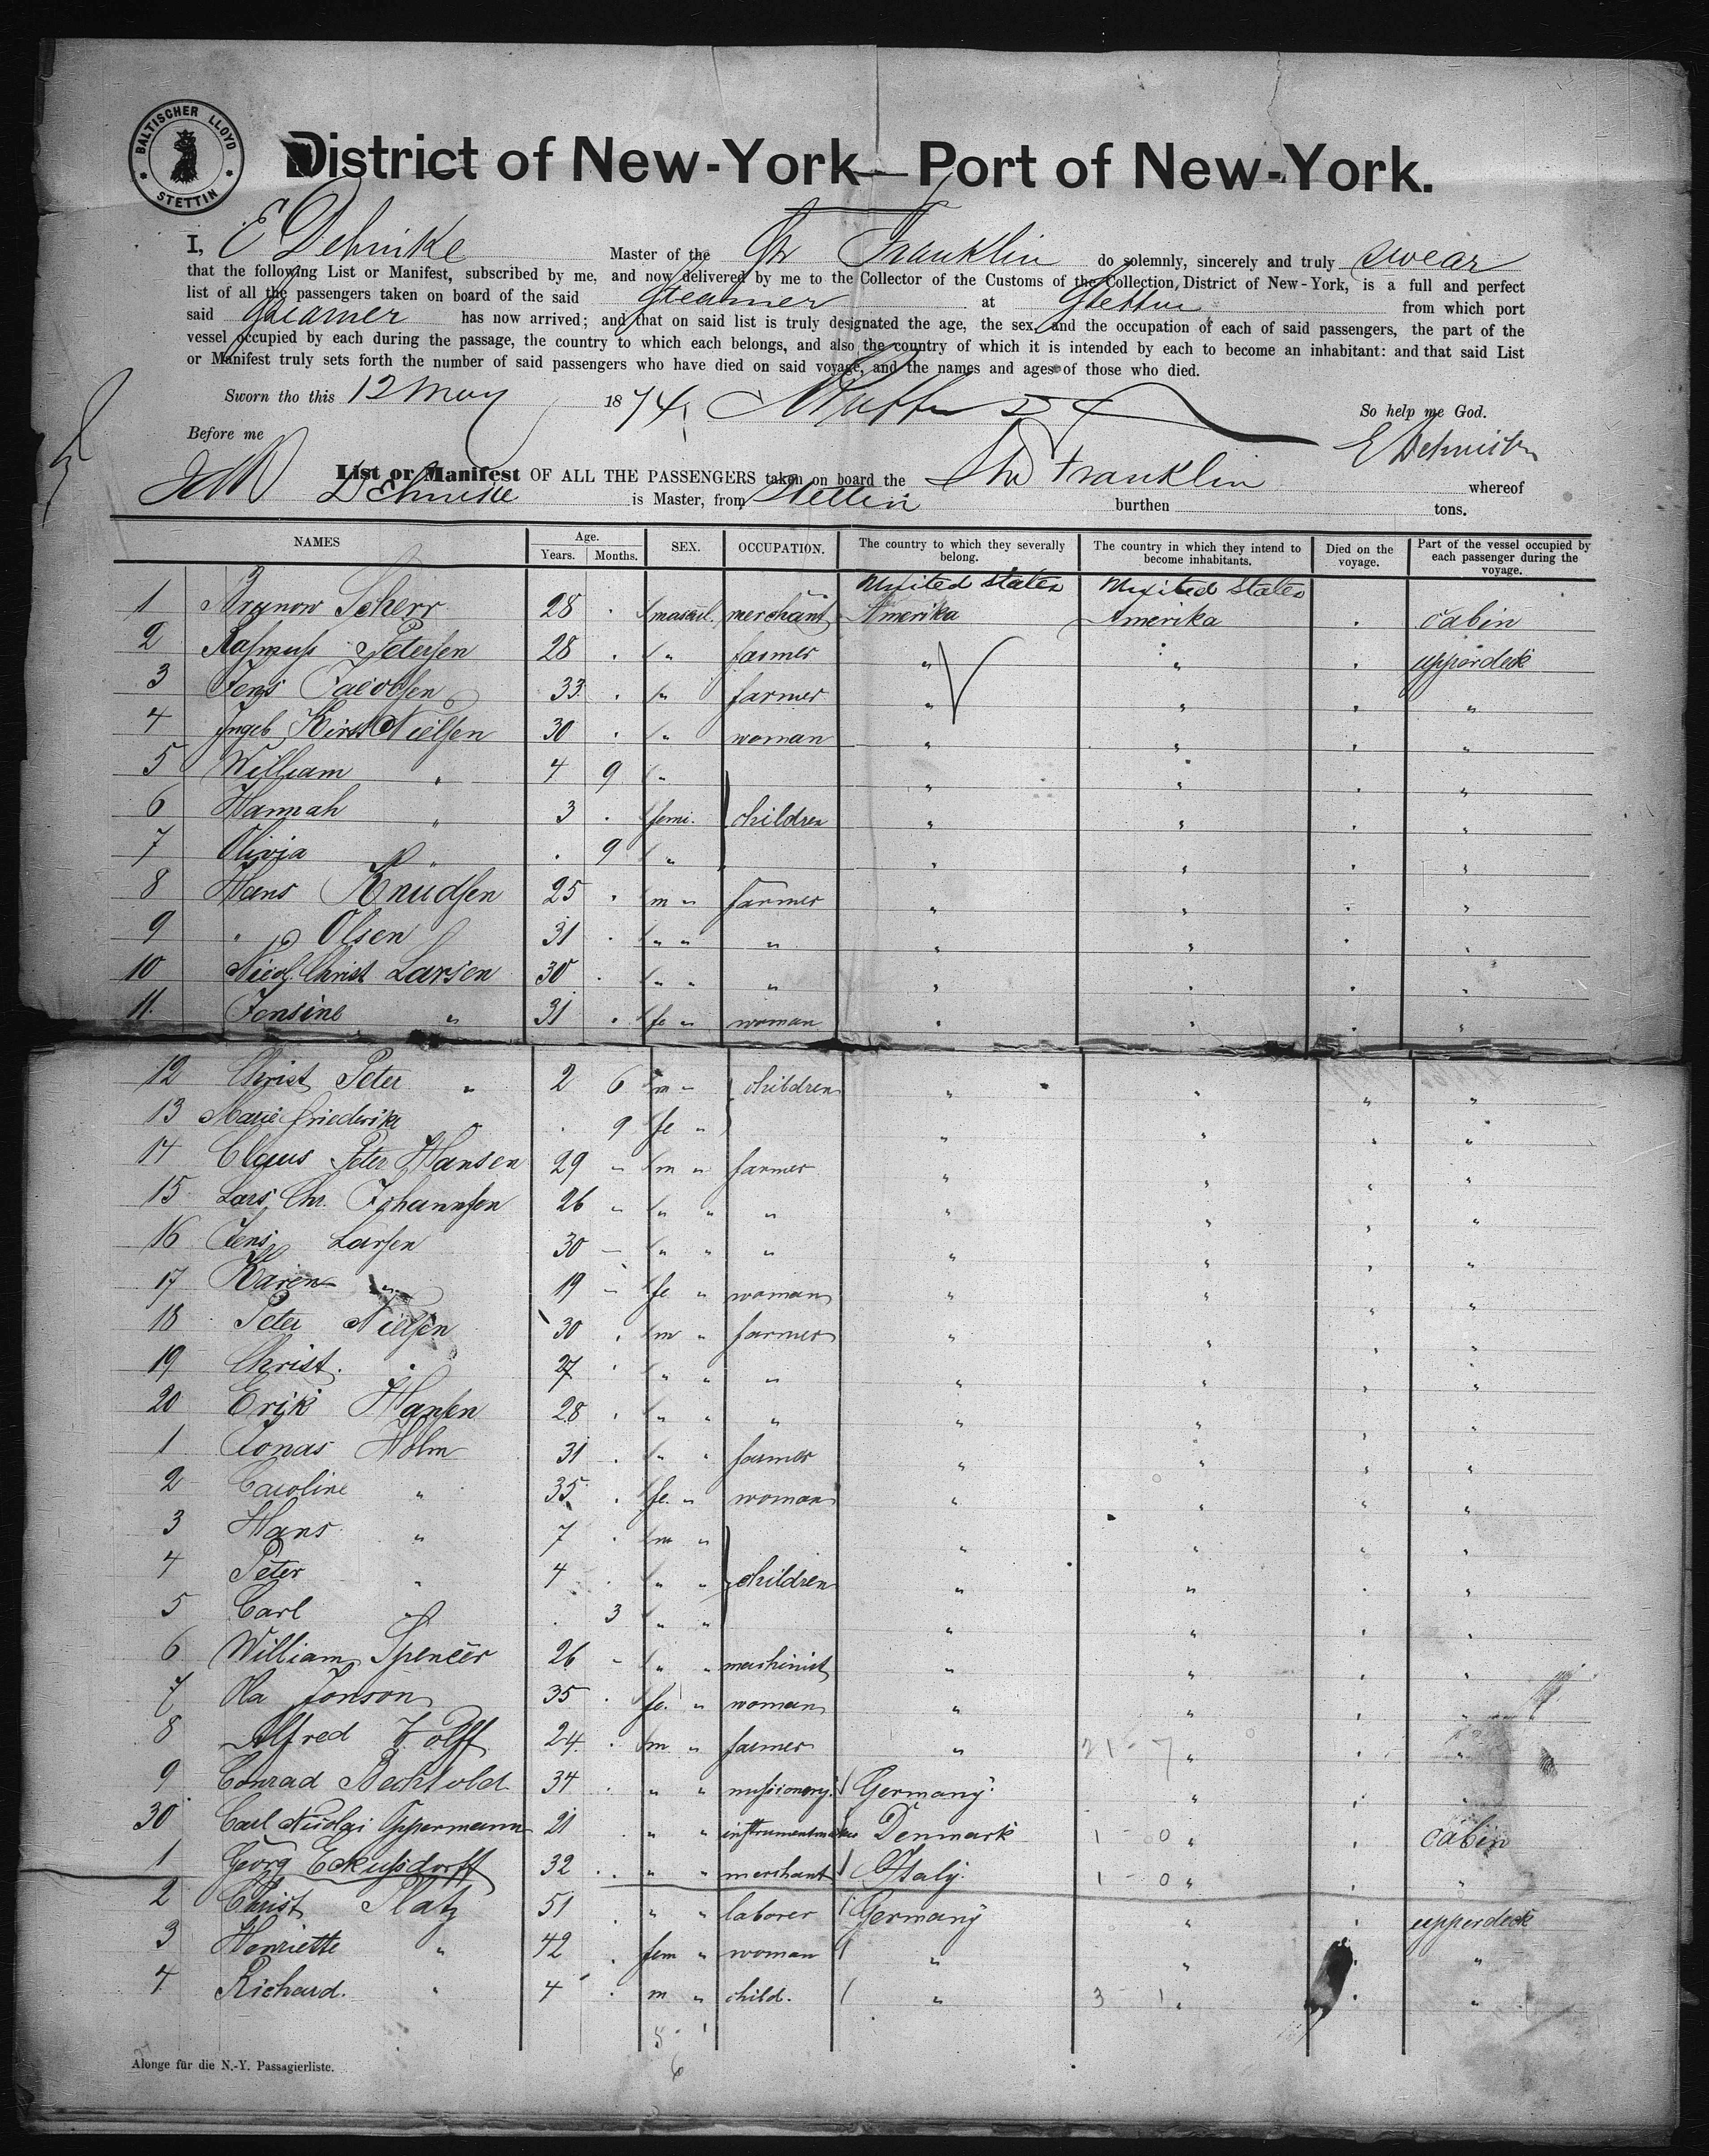 BALTISCHER LLOYD
STETTIN
District of New-York—Port of New-York.
I, E Dehnike Master of the Str Franklin do solemnly, sincerely and truly swear
that the following List or Manifest, subscribed by me, and now delivered by me to the Collector of the Customs of the Collection, District of New-York, is a full and perfect
list of all the passengers taken on board of the said Steamer at Stettin from which port
said Steamer has now arrived; and that on said list is truly designated the age, the sex, and the occupation of each of said passengers, the part of the
vessel occupied by each during the passage, the country to which each belongs, and also the country of which it is intended by each to become an inhabitant: and that said List
or Manifest truly sets forth the number of said passengers who have died on said voyage, and the names and ages of those who died.
Sworn tho this 12 May 1874 So help me God.
Before me E Dehnike
List or Manifest OF ALL THE PASSENGERS taken on board the Str Franklin whereof
Dehnike is Master, from Stettin burthen tons.
NAMES Age. Years. Months. SEX. OCCUPATION. The country to which they severally belong. The country in which they intend to become inhabitants. Died on the voyage. Part of the vessel occupied by each passenger during the voyage.
United States United States
1 Scherr 28 . mascul. merchant Amerika Amerika . cabin
2 Rasmuss Petersen 28 . " farmer " " . upperdeck
3 Jens Jacobsen 33 . " farmer " " " "
4 Ingeb Kirst Nielsen 30 . " woman " " " "
5 William " 4 9 " " " "
6 Hannah " 3 . femi. children " " . "
7 Olivia " . 9 " " " . "
8 Hans Knudsen 25 . m " farmer " " . "
9 " Olsen 31 . " " " " " . "
10 Nicol. Christ Larsen 30 . " " " " " . "
11. Jensine " 31 . fe " woman " " . "
12 Christ Peter " 2 6 m " children " " " "
13 Marie Friederike . 9 fe " " " " "
14 Claus Peter Hansen 29 " m " farmer " " " "
15 Lars Chr. Johannsen 26 " " " " " " " "
16 Jens Larsen 30 — " " " " " " "
17 Karen " 19 " fe " woman " " " "
18 Peter Nielsen 30 . m " farmer " " " "
19 Christ. " 27 . " " " " " " "
20 Erik Hansen 28 . " " " " " " "
1 Jonas Holm 31 . " " farmer " " " "
2 Caroline " 35 . fe. " woman " " " "
3 Hans " 7 . m " " " " "
4 Peter " 4 . " " children " " . "
5 Carl " . 3 " " " " " "
6 William Spencer 26 " " " mashinist " " " "
7 Ola Jonson 35 . fe. " woman " " " "
8 Alfred Wolff 24 . m " farmer " 21 - 7 " . "
9 Conrad Bechtold 34 . " " missionary. Germany. " " "
30 Carl Nicolai Oppermann 21 . " " instrumentmaker Denmark 1 - 0 " " cabin
1 Georg 32 . " " merchant Italy. 1 - 0 " " "
2 Christ Platz 51 . " " laborer Germany " " upperdeck
3 Henriette " 42 . fem " woman " " . "
4 Richard. " 4 . m " child. " 3 1 " . "
5 1
6
Alonge für die N.-Y. Passagierliste.